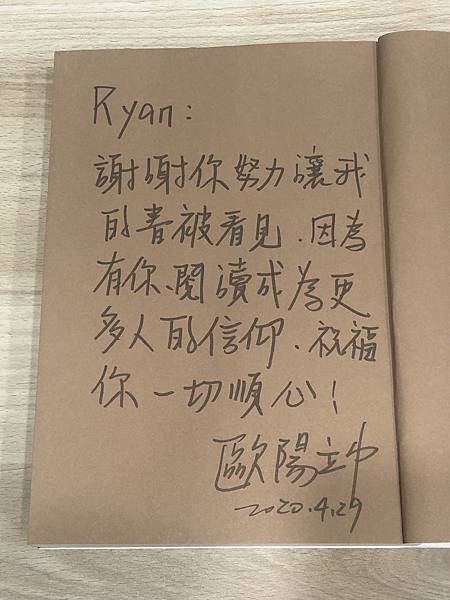 Ryan:
謝謝你努力讓我
的書被看見、因為
有你、閱讀成為更
多人的信仰、祝福
你一切順心!
歐陽立中
2020.4.29